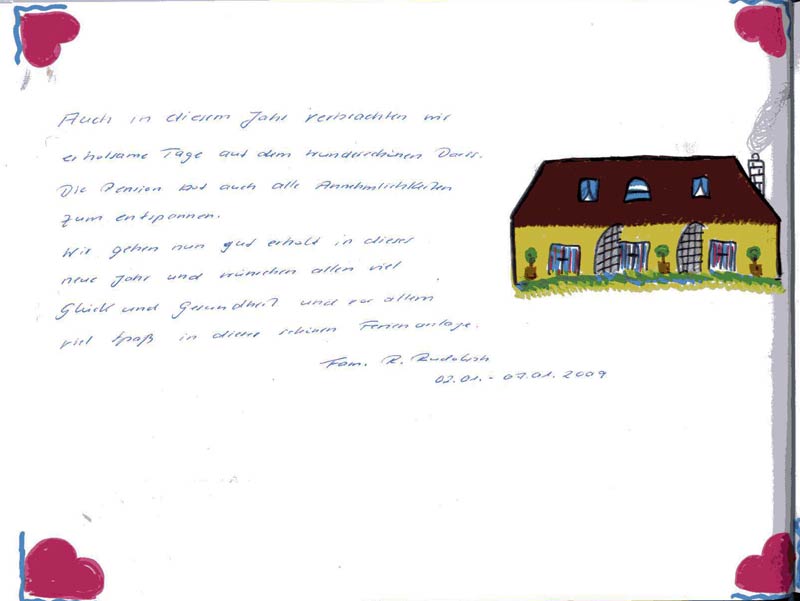 Auch in diesem Jahr verbrachten wir
erholsame Tage auf dem wunderschönen Darss.
Die Pension bot auch alle Annehmlichkeiten
zum entspannen.
Wir gehen nun gut erholt in dieses
neue Jahr und wünschen allen viel
Glück und Gesundheit und vor allem
viel Spaß in dieser schönen Ferienanlage.
Fam. R. Rudolph
02.01. - 07.01.2009